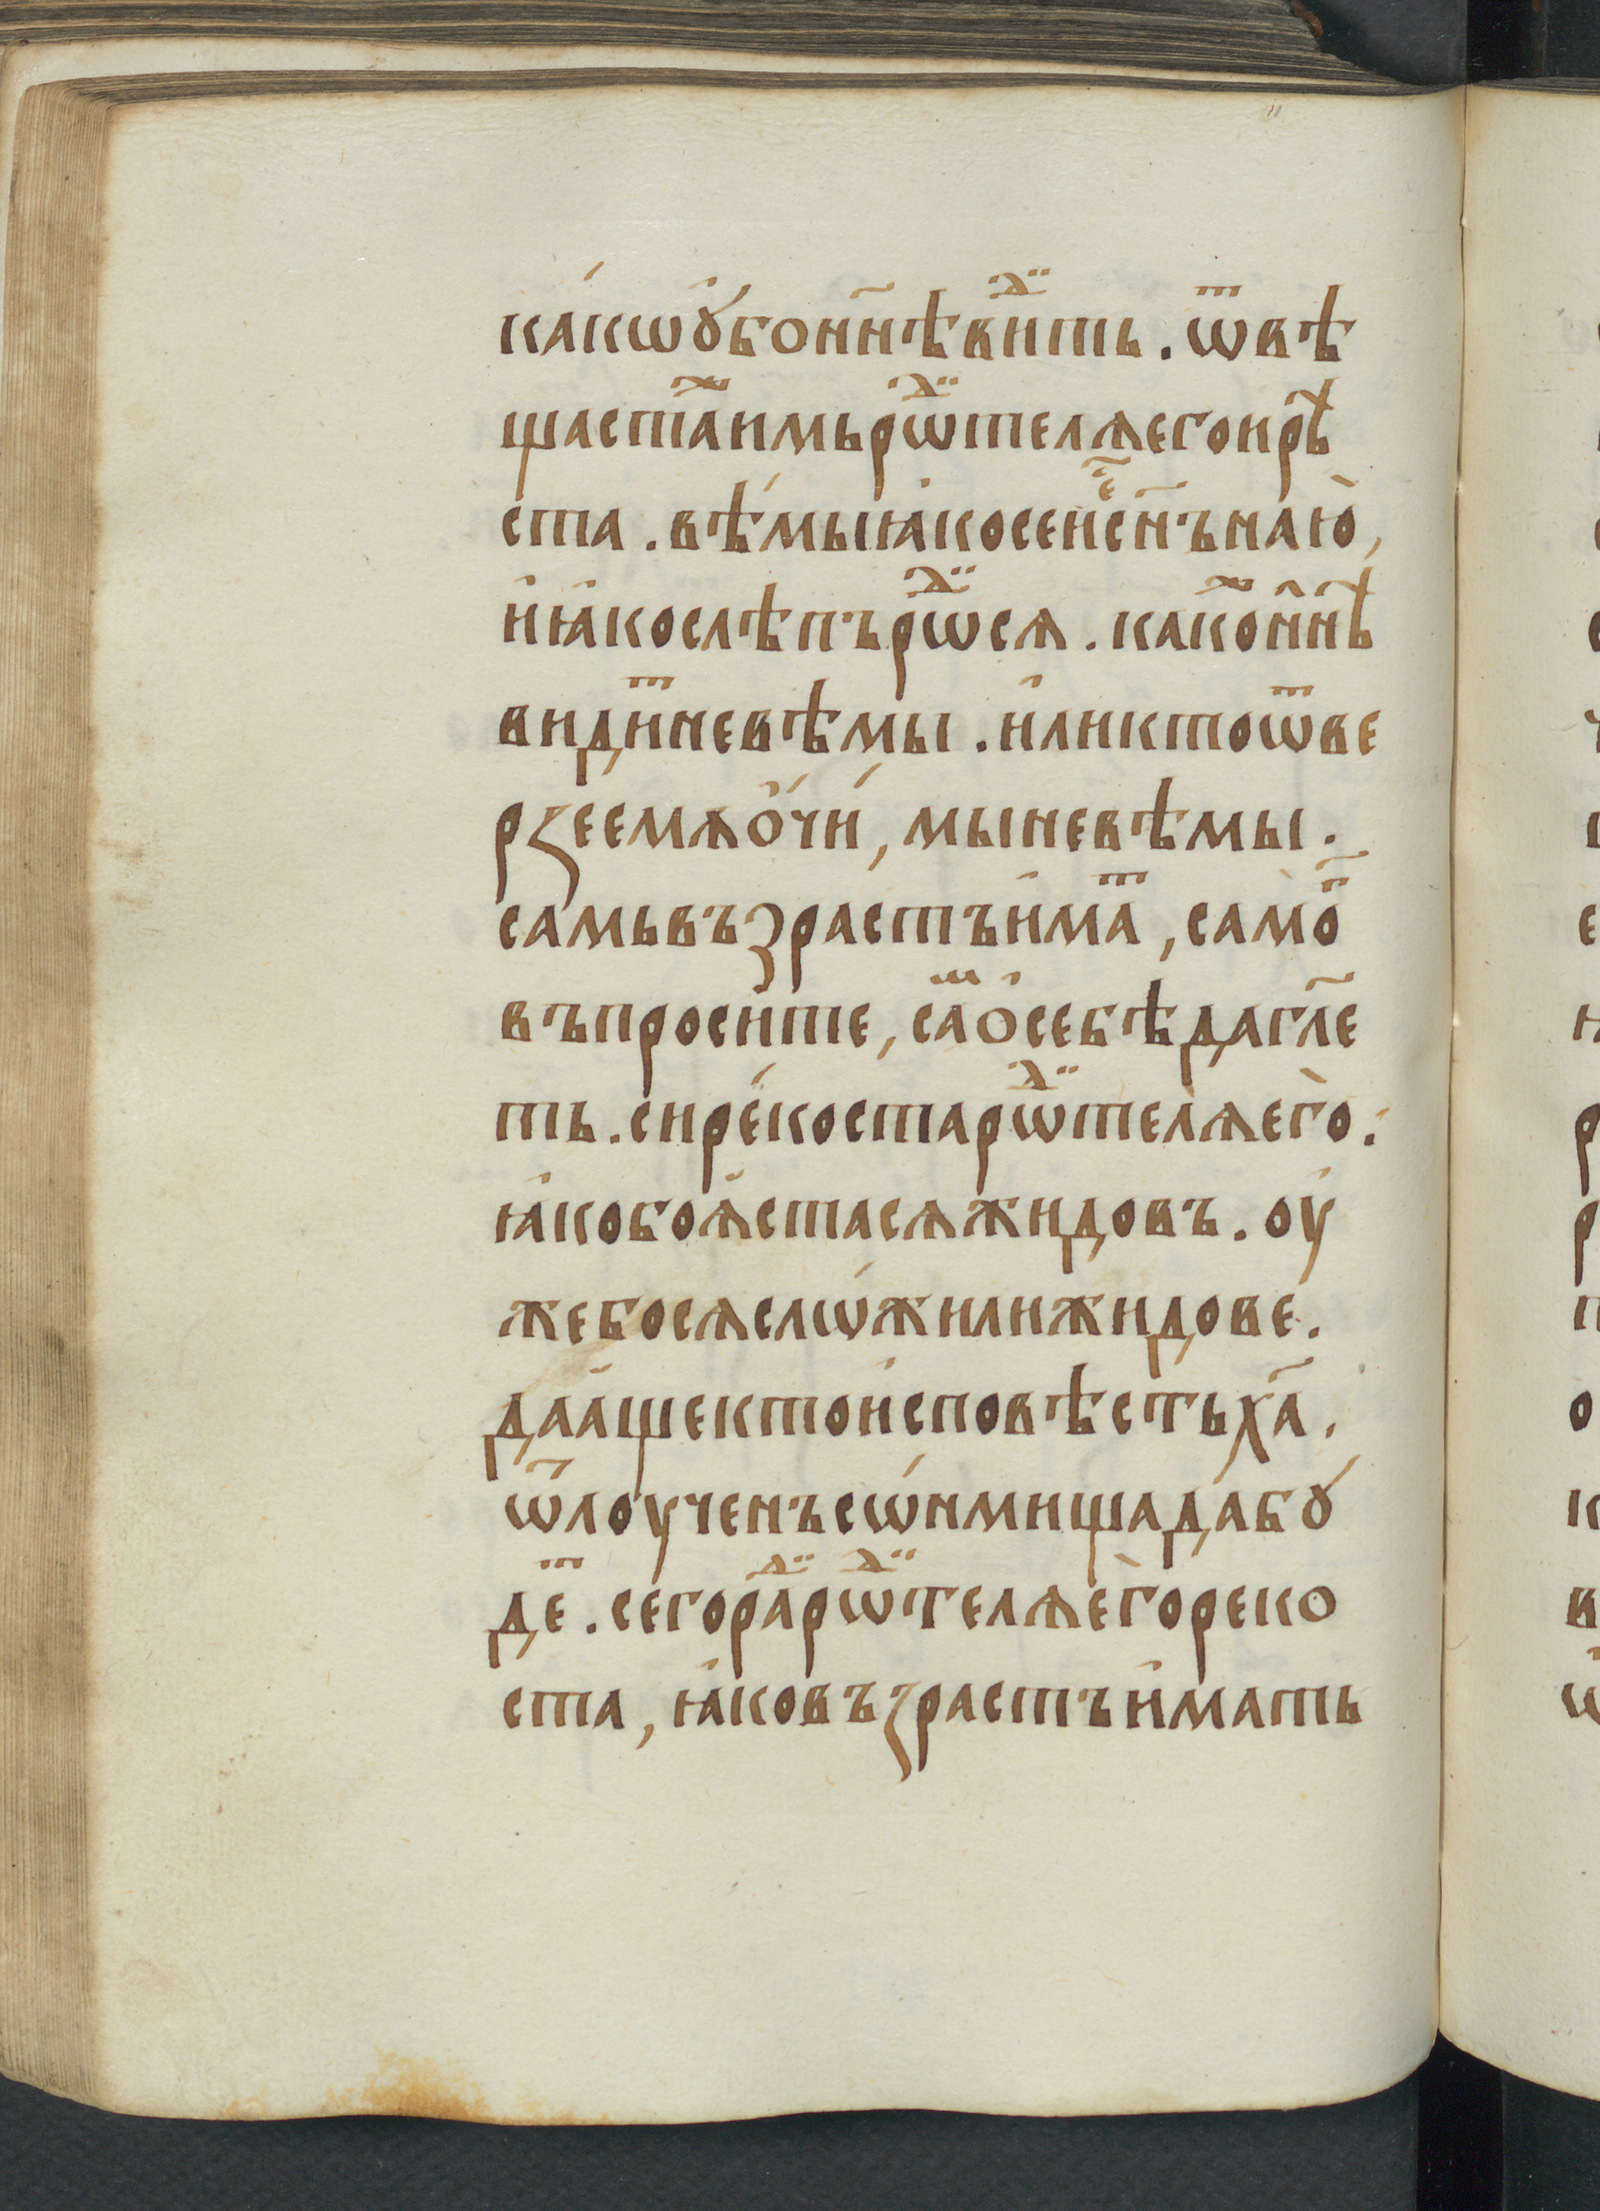 ка́кѡꙋ́бон҃нѣвиⷣть . ѿвѣ
щастаⷤимьрѡⷣтелѧегоирѣ҃
ста . вѣ́мыꙗ҆косеиⷭ҇с҃нънаю̀,
и҆ꙗ҆кослѣпърѡⷣсѧ . какоⷤн҃нѣ
видиⷮневѣмы . и҆ликтоѿве
рꙁеемѧо҆́чи́, мыневѣмы .
самьвъзрастъи҆маⷮ, самоⷢ҇
въпроси́те, саⷨо҆себѣдагл҃е
ть . сиреко́старѡⷣтелѧ̀его̀ .
ꙗ҆кобоѧ҆́стасѧжидовъ . оу҆
жебосѧслѡ́жилижидове́ .
даа҆́щектои҆сповѣстьх҃а .
ѿлоученъсѡ́нмищада́бꙋ
деⷮ . сегораⷣрѡⷣтелѧе҆го̀реко
ста, ꙗ҆ковъꙁрастъи҆мать